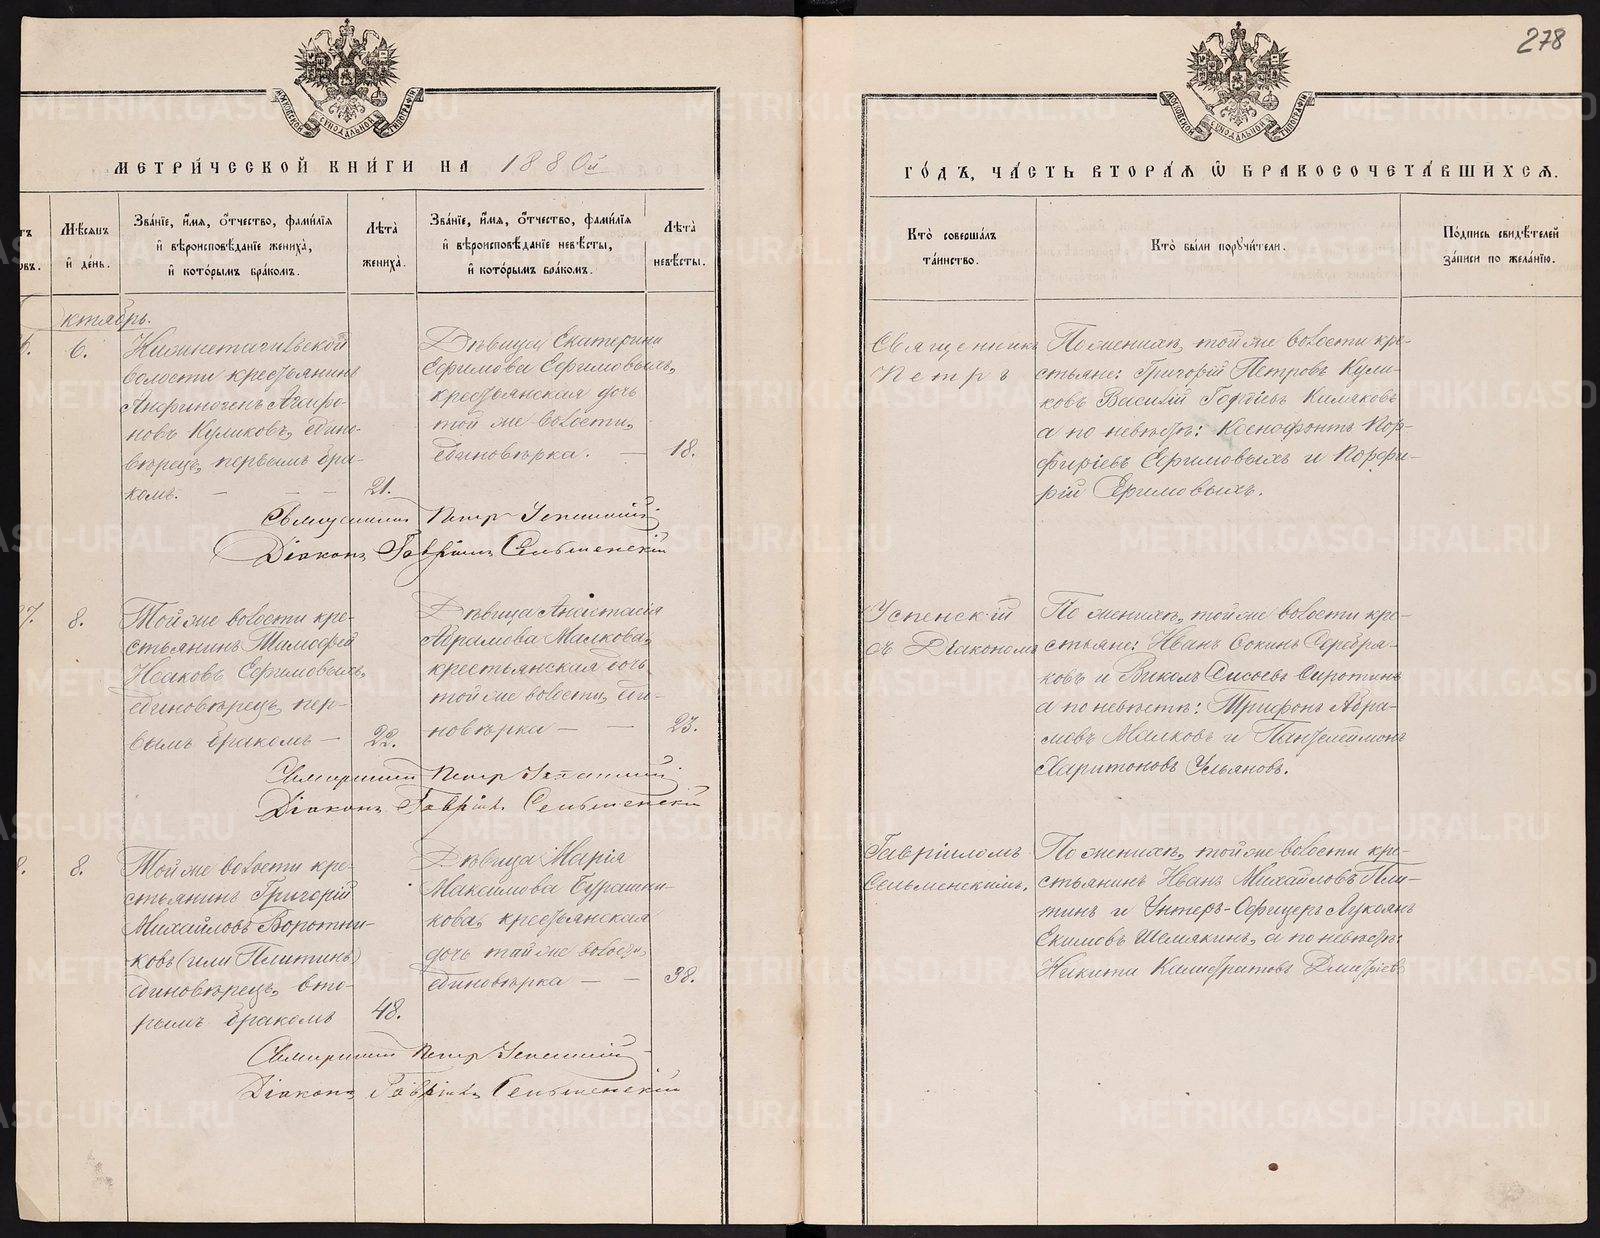 278
МОСКОВСКОЙ СѴНОДАЛЬНОЙ ТИПОГРАФІИ
МОСКОВСКОЙ СѴНОДАЛЬНОЙ ТИПОГРАФІИ
МЕТРИ́ЧЕСКОЙ КНИ́ГИ НА 1880й
ГО́ДЪ, ЧА́СТЬ ВТОРА́Ѧ Ѽ БРАКОСОЧЕТА́ВШИХСѦ.
Мѣ́сѧцъ
и҆ де́нь.
Зва́нїе, и҆́мѧ, ѻ҆́тчество, фами́лїѧ
и҆ вѣроисповѣ́данїе жениха̀,
и҆ кото́рымъ бра́комъ.
Лѣ́та
жениха̀.
Зва́нїе, и҆́мѧ, ѻ҆́тчество, фами́лїѧ
и҆ вѣроисповѣ́данїе невѣ́сты,
и҆ кото́рымъ бра́комъ.
Лѣ́та
невѣ́сты.
Кто̀ соверша́лъ
та́инство.
Кто̀ бы́ли порꙋчи́тели.
По́дпись свидѣ́телей
за́писи по жела́нїю.
ктябрь.
6.
волости крестьянинъ
новъ Куликовъ, едино-
вѣрецъ, первымъ бра-
комъ. — — —
21.
Дѣвица Екатерина
Ефимова Ефимовыхъ,
крестьянская дочь
той же волости,
единовѣрка. —
18.
Священникъ
Петръ
По женихѣ, той же волости кре-
стьяне: Григорій Петровъ Кули-
ковъ Василій Киляковъ
а по невѣстѣ: Ксенофонтъ Пор-
фиріевъ Ефимовыхъ и Порфи-
рій Ефимовыхъ.
Священникъ Петръ Успенскій
Діаконъ Гавріилъ Сельменскій
7.
8.
Той же волости кре-
стьянинъ Тимофей
Исаковъ Ефимовыхъ,
единовѣрецъ, пер-
вымъ бракомъ —
22.
Дѣвица Анастасія
Абрамова Малкова,
крестьянская дочь
той же волости, еди-
новѣрка — —
23.
Успенскій
съ Діакономъ
По женихѣ, той же волости кре-
стьяне: Иванъ Серебря-
ковъ и Викулъ Сысоевъ Сиротинъ
а по невѣстѣ: Трифонъ Абра-
мовъ Малковъ и Пантелеймонъ
Харитоновъ Ульяновъ.
Священникъ Петръ Успенскій
Діаконъ Гавріилъ Сельменскій
8.
Той же волости кре-
стьянинъ Григорій
Михайловъ Воротни-
ковъ (или Плитинъ)
единовѣрецъ, вто-
рымъ бракомъ
48.
Дѣвица Марія
Максимова Бурашни-
кова, крестьянская
дочь той же волости,
единовѣрка — —
38.
Гавріиломъ
Сельменскимъ.
По женихѣ, той же волости кре-
стьянинъ Иванъ Михайловъ Пли-
тинъ и Унтеръ-Офицеръ Лукоянъ
Екимовъ Шемякинъ, а по невѣстѣ:
Никита Калистратовъ Дмитріевъ
Священникъ Петръ Успенскій
Діаконъ Гавріилъ Сельменскій
METRIKI.GASO-URAL.RU